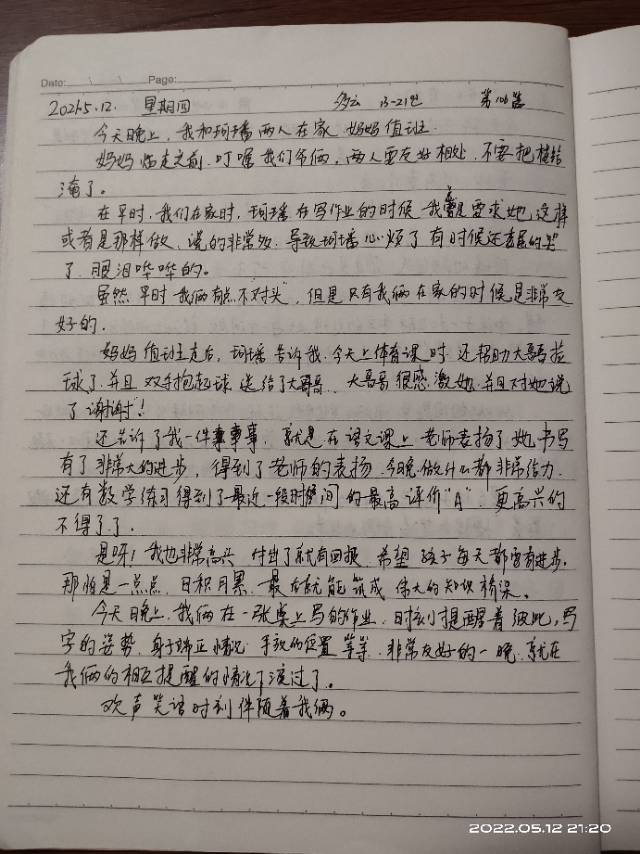 Date: / / Page:
2021.5.12. 星期四 多云 13-21℃ 第106篇
今天晚上,我和珂瑶两人在家,妈妈值班.
妈妈临走之前,叮嘱我们爷俩,两人要友好相处,不要把楼给
淹了。
在平时,我们在家时,珂瑶在写作业的时候,我总是要求她,这样
或者是那样做,说的非常多,导致珂瑶心烦了,有时候还委屈的哭
了,眼泪哗哗的。
虽然平时我俩有点"不对头",但是只有我俩在家的时候是非常友
好的.
妈妈值班走后,珂瑶告诉我,今天上体育课时,还帮助大哥哥捡
球了,并且双手抱起球送给了大哥哥.大哥哥很感激她,并且对她说
了"谢谢"!
还告诉了我一件事,就是在语文课上老师表扬了她,书写
有了非常大的进步,得到了老师的表扬,今晚做什么都非常给力.
还有数学练习得到了最近一段时间的最高评价"A",更高兴的
不得了了.
是呀!我也非常高兴,付出了就有回报,希望孩子每天都要有进步,
那怕是一点点,日积月累,最后就能筑成伟大的知识桥梁。
今天晚上,我俩在一张桌上写的作业,时刻提醒着彼此,写
字的姿势,身子端正情况,手放的位置等等.非常友好的一晚,就在
我俩的相互提醒的情况下渡过了。
欢声笑语时刻伴随着我俩。
2022.05.12 21:20